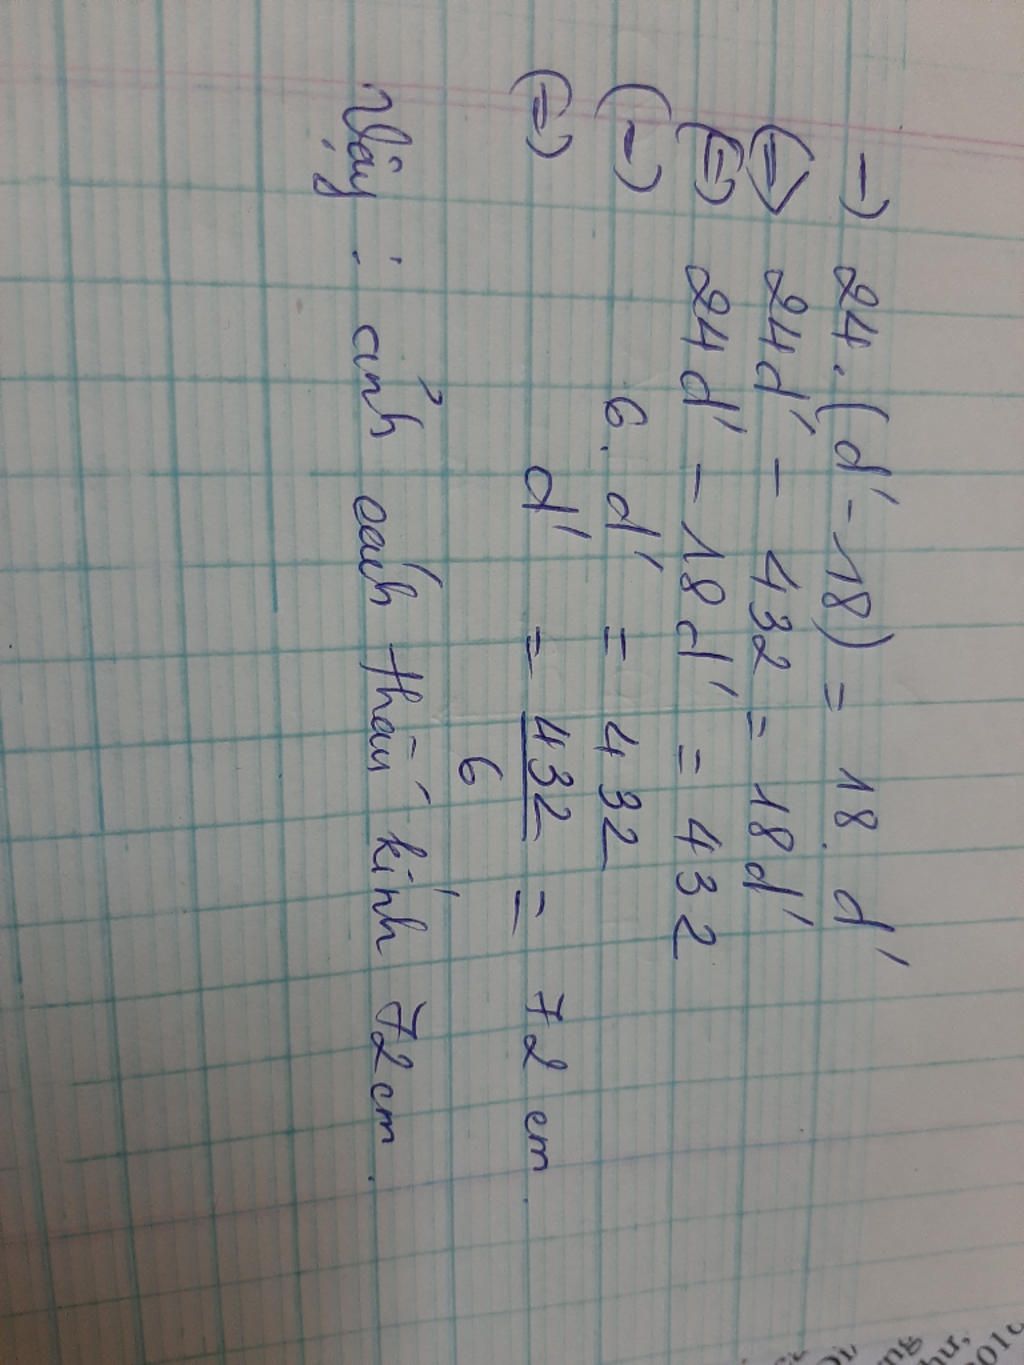 → 24.(d' - 18) = 18. d'
⇔ 24d' - 432 = 18d'
⇔ 24d' - 18d' = 432
⇔ 6. d' = 432
⇔ d' = 432/6 = 72 cm.
Vậy : ảnh cách thấu kính 72cm.